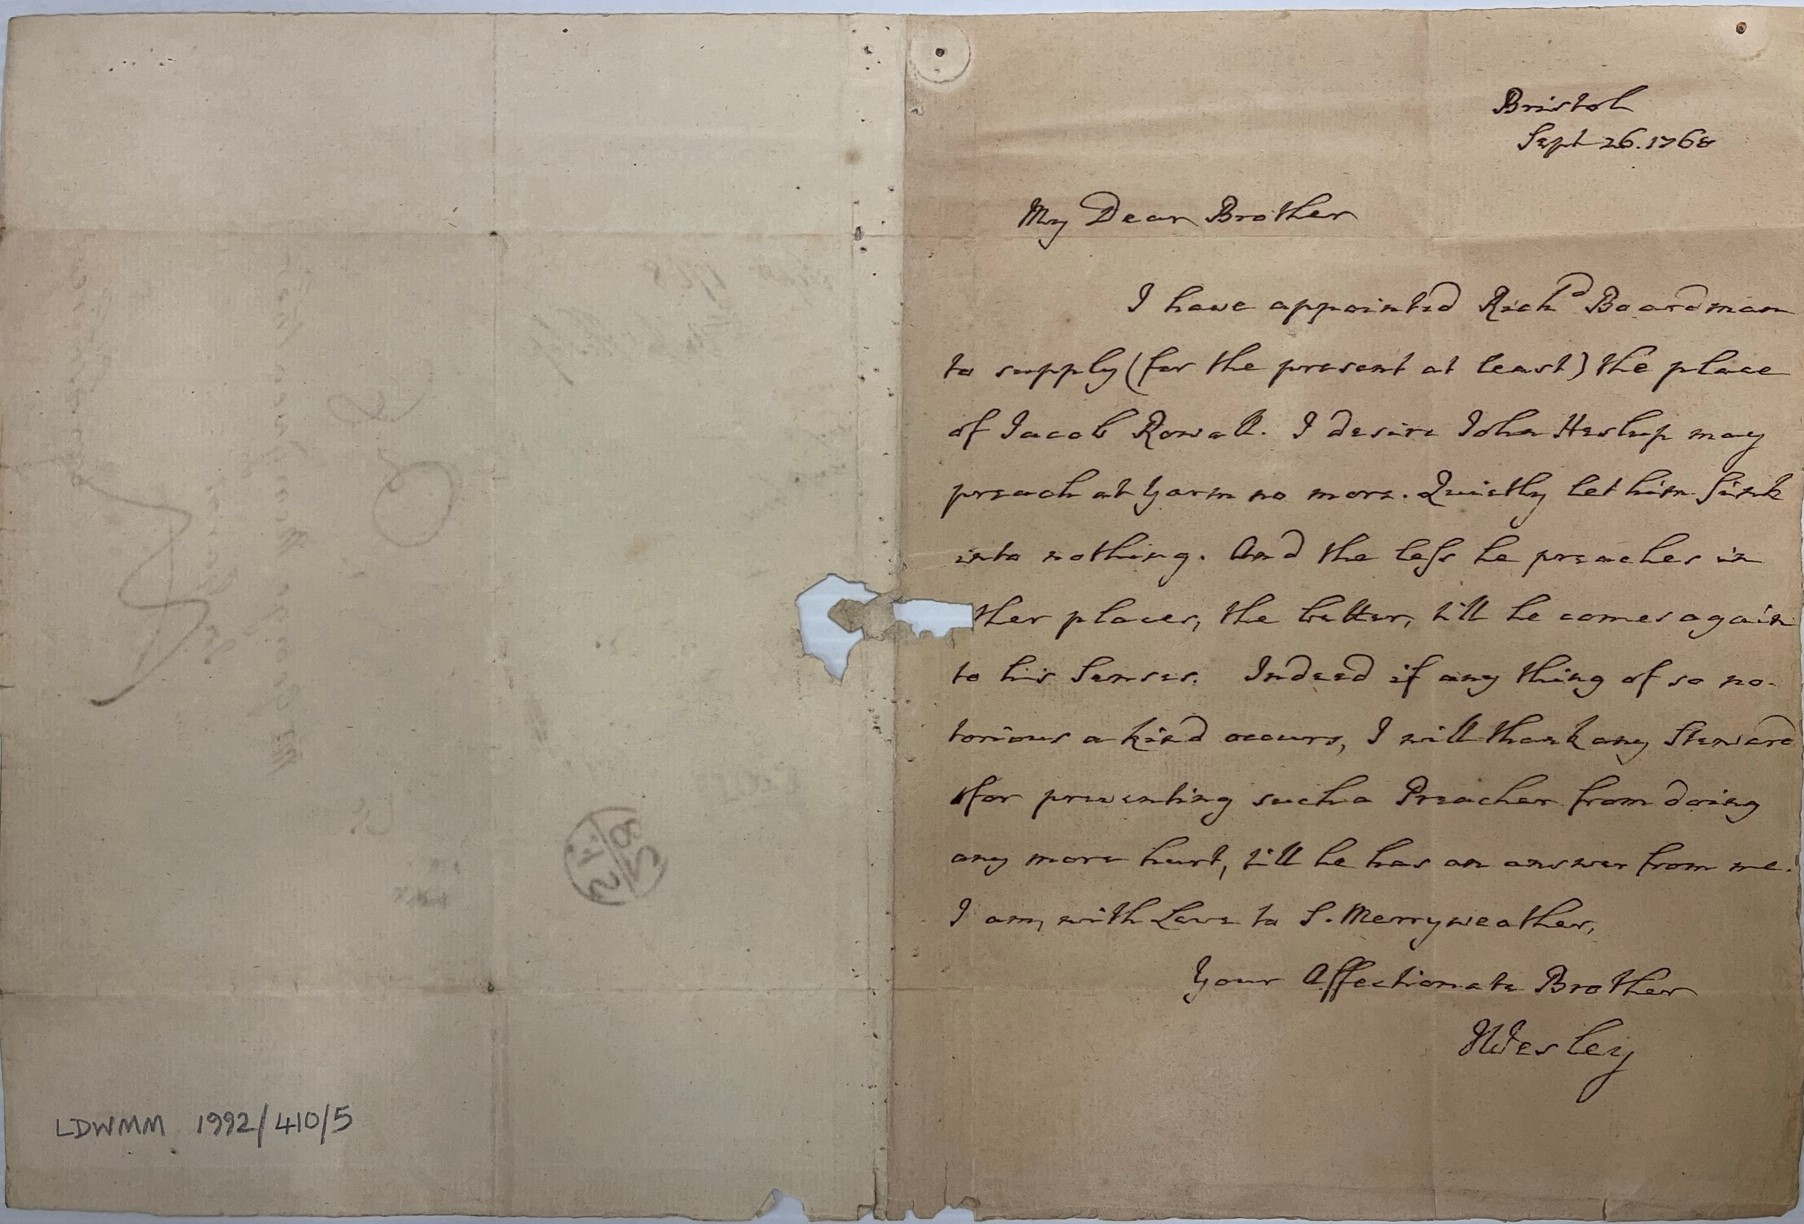 Bristol
Sept 26. 1768
My Dear Brother
I have appointed Richd Boardman
to supply (for the present at least) the place
of Jacob Rowell. I desire John Heslup may
preach at Yarm no more. Quietly let him Sink
into nothing. And the less he preaches in
ther places, the better, till he comes again
to his Senses. Indeed if any thing of so no-
torious a kind occurs, I will thank any Steward
for preventing such a Preacher from doing
any more hurt, till he has an answer from me.
I am, with Love to S. Merryweather,
Your Affectionate Brother
JWesley
LDWMM 1992/410/5